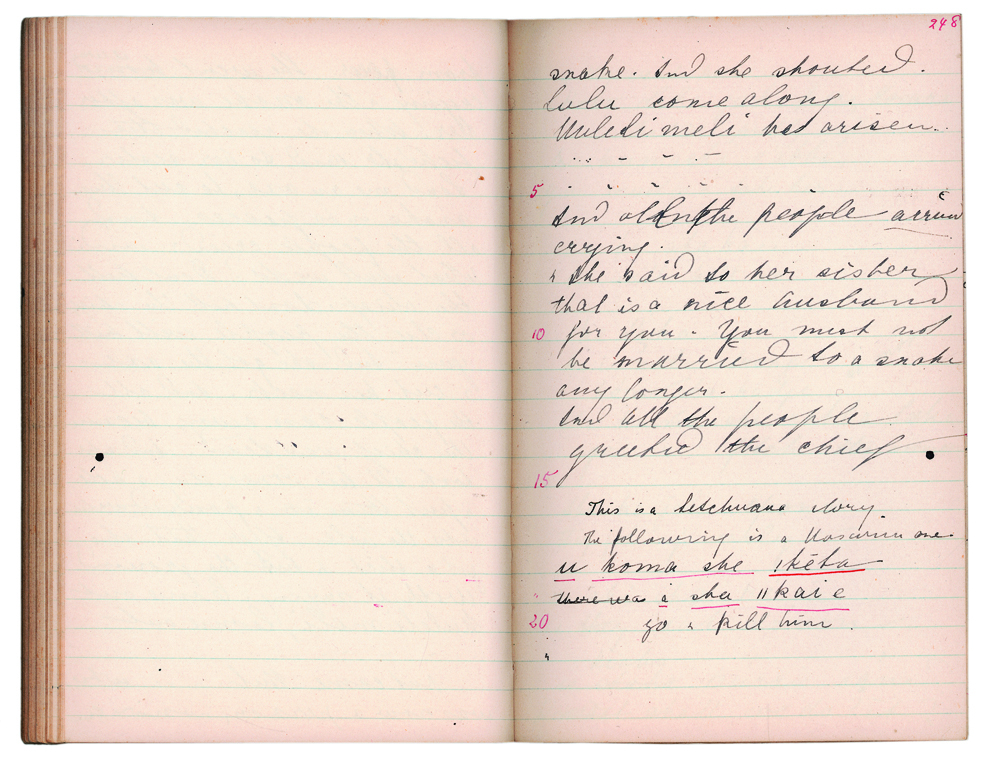 248
snake. And she shouted.
Lulu come along.
has arisen.
5
And all the people arrive
crying.
" she said to her sister
that is a nice husband
10 for you. You must not
be married to a snake
any longer.
And all the people
greeted the chief
15
This is a Setchuana story.
The following is a one.
u koma she ıkēta
there was i sha ıı kai e
20 go " kill him.
"